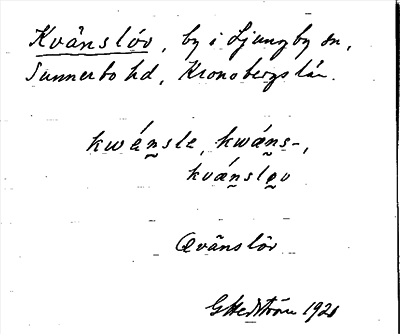 Kvänslöv, by i Ljungby sn,
Sunnerbo hd, Kronobergs län.
kwánsle, kwáns-,
kvánsløv
Qvänslöv
GHedström 1920